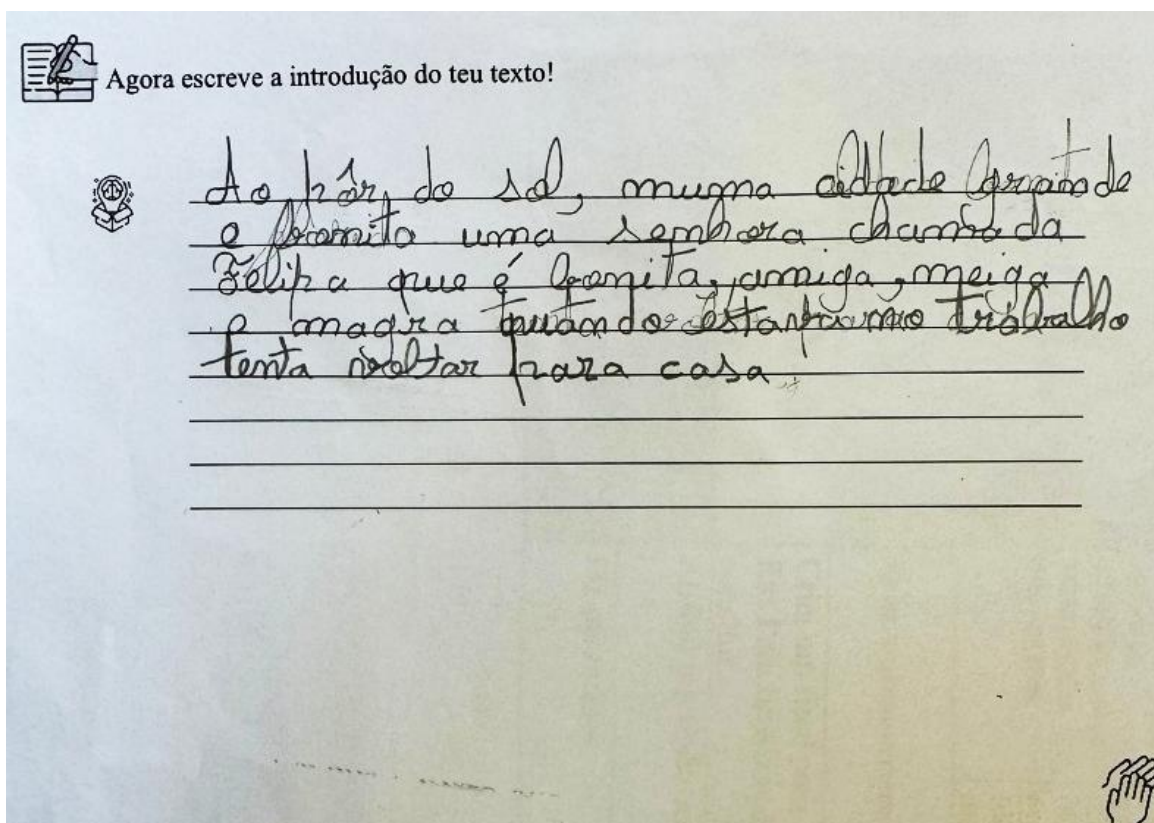 Agora escreve a introdução do teu texto!
Ao pôr do sol, numa cidade grande
e bonita uma senhora chamada
Felipa que é bonita, amiga, meiga
e magra quando estava no trabalho
tenta voltar para casa.